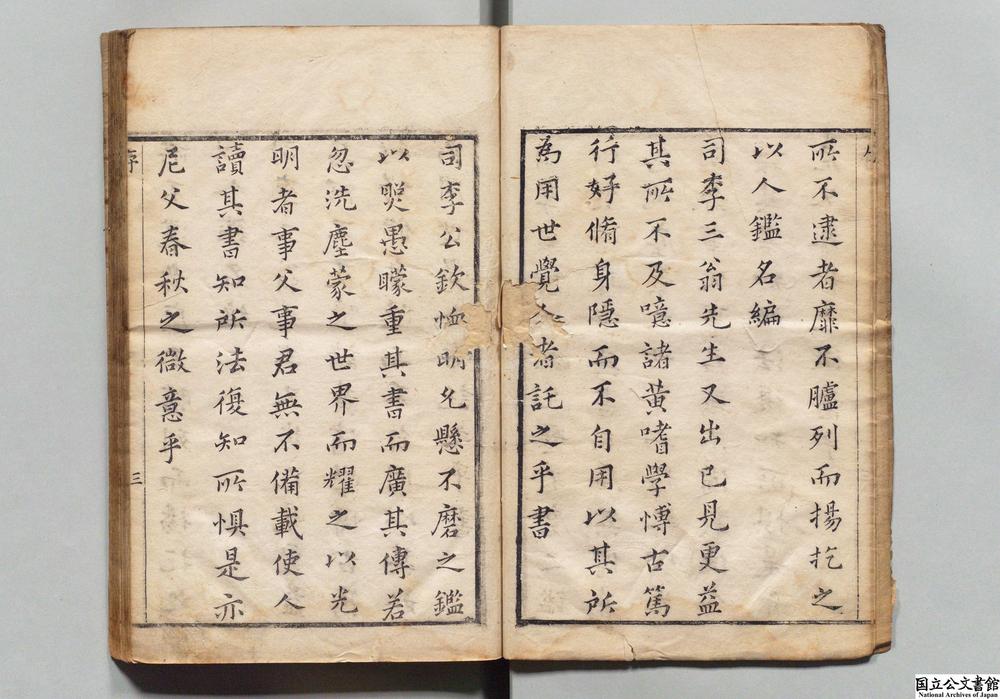 所不逮者靡不臚列而揚扢之
以人鑑名編
司李三翁先生又出已見更益
其所不及噫諸黄嗜學愽古篤
行好脩身隱而不自用以其所
為用世覺人者託之乎書
司李公欽恤明允懸不磨之鑑
以煚愚矇重其書而廣其傳若
忽洗塵蒙之世界而耀之以光
明者事父事君無不備載使人
讀其書知所法復知所惧是亦
尼父春秋之微意乎
序
三
国立公文書館
National Archives of Japan